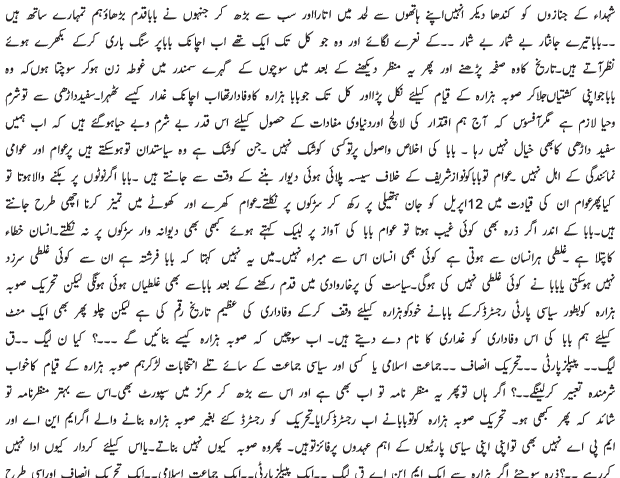 شہداء کے جنازوں کو کندھا دیکر انہیں اپنے ہاتھوں سے لحد میں اتارا اور سب سے بڑھ کر جنہوں نے باباقدم بڑھاؤہم تمہارے ساتھ ہیں
۔۔باباتیرے جانثار بے شمار بے شمار ۔۔کے نعرے لگائے اور وہ جو کل تک ایک تھے اب اچانک باباپر سنگ باری کرکے بکھرے ہوئے
نظرآتے ہیں۔تاریخ کاوہ صفحہ پڑھنے اور پھر یہ منظر دیکھنے کے بعد میں سوچوں کے گہرے سمندر میں غوطہ زن ہوکر سوچتا ہوں کہ وہ
باباجواپنی کشتیاں جلاکر صوبہ ہزارہ کے قیام کیلئے نکل پڑااور کل تک جوبابا ہزارہ کاوفادارتھااب اچانک غدار کیسے ٹھہرا۔سفیدداڑھی سے توشرم
وحیا لازم ہے مگرآفسوس کہ آج ہم اقتدار کی لالچ اوردنیاوی مفادات کے حصول کیلئے اس قدر بے شرم وبے حیاہوگئے ہیں کہ اب ہمیں
سفید داڑھی کابھی خیال نہیں رہا ۔ بابا کی اخلاص واصول پرتوکسی کوشک نہیں ۔جن کوشک ہے وہ سیاستدان توہوسکتے ہیں پرعوام اور عوامی
نمائندگی کے اہل نہیں ۔عوام توباباکونوازشریف کے خلاف سیسہ پلائی ہوئی دیوار بننے کے وقت سے جانتے ہیں ۔بابا اگرنوٹوں پر بکنے والاہوتا تو
کیاپھرعوام ان کی قیادت میں 12اپریل کو جان ہتھیلی پر رکھ کر سڑکوں پر نکلتے۔عوام کھرے اور کھوٹے میں تمیز کرنا اچھی طرح جانتے
ہیں۔بابا کے اندر اگر ذرہ بھی کوئی عیب ہوتا تو عوام بابا کی آواز پر لبیک کہتے ہوئے کبھی بھی دیوانہ وار سڑکوں پر نہ نکلتے۔انسان خطاء
کاپتلا ہے ۔غلطی ہرانسان سے ہوتی ہے کوئی بھی انسان اس سے مبراء نہیں۔میں یہ نہیں کہتا کہ بابا فرشتہ ہے ان سے کوئی غلطی سرزد
نہیں ہوسکتی یابابا نے کوئی غلطی نہیں کی ہوگی۔سیاست کی پرخاروادی میں قدم رکھنے کے بعد باباسے بھی غلطیاں ہوئی ہونگی لیکن تحریک صوبہ
ہزارہ کوبطور سیاسی پارٹی رجسٹرڈکرکے بابانے خودکوہزارہ کیلئے وقف کرکے وفاداری کی عظیم تاریخ رقم کی ہے لیکن چلو پھر بھی ایک منٹ
کیلئے ہم بابا کی اس وفاداری کو غداری کا نام دے دیتے ہیں۔ اب سوچیں کہ صوبہ ہزارہ کیسے بنائیں گے ۔۔۔؟ کیا ن لیگ ۔۔ق
لیگ۔۔ پیپلزپارٹی ۔۔۔تحریک انصاف ۔۔جماعت اسلامی یا کسی اور سیاسی جماعت کے سائے تلے انتخابات لڑکرہم صوبہ ہزارہ کے قیام کاخواب
شرمندہ تعبیر کرلینگے۔۔؟ اگر ہاں توپھر یہ منظر نامہ تو اب بھی ہے اور اس سے بڑھ کر مرکز میں سپورٹ بھی۔اس سے بہتر منظرنامہ تو
شائد کہ پھر کبھی ہو۔ تحریک صوبہ ہزارہ کوتوبابانے اب رجسٹرڈکرایا۔تحریک کو رجسٹرڈ کئے بغیر صوبہ ہزارہ بنانے والے اگرایم این اے اور
ایم پی اے نہیں بھی تواپنی اپنی سیاسی پارٹیوں کے اہم عہدوں پرفائزتوہیں۔ پھروہ صوبہ کیوں نہیں بناتے۔یااس کیلئے کردار کیوں ادا نہیں
کررہے ۔۔؟ذرہ سوچئے اگر ہزارہ سے ایک ایم این اے ق لیگ ۔۔ایک پیپلزپارٹی۔۔ایک جماعت اسلامی۔۔ایک تحریک انصاف اوراسی طرح